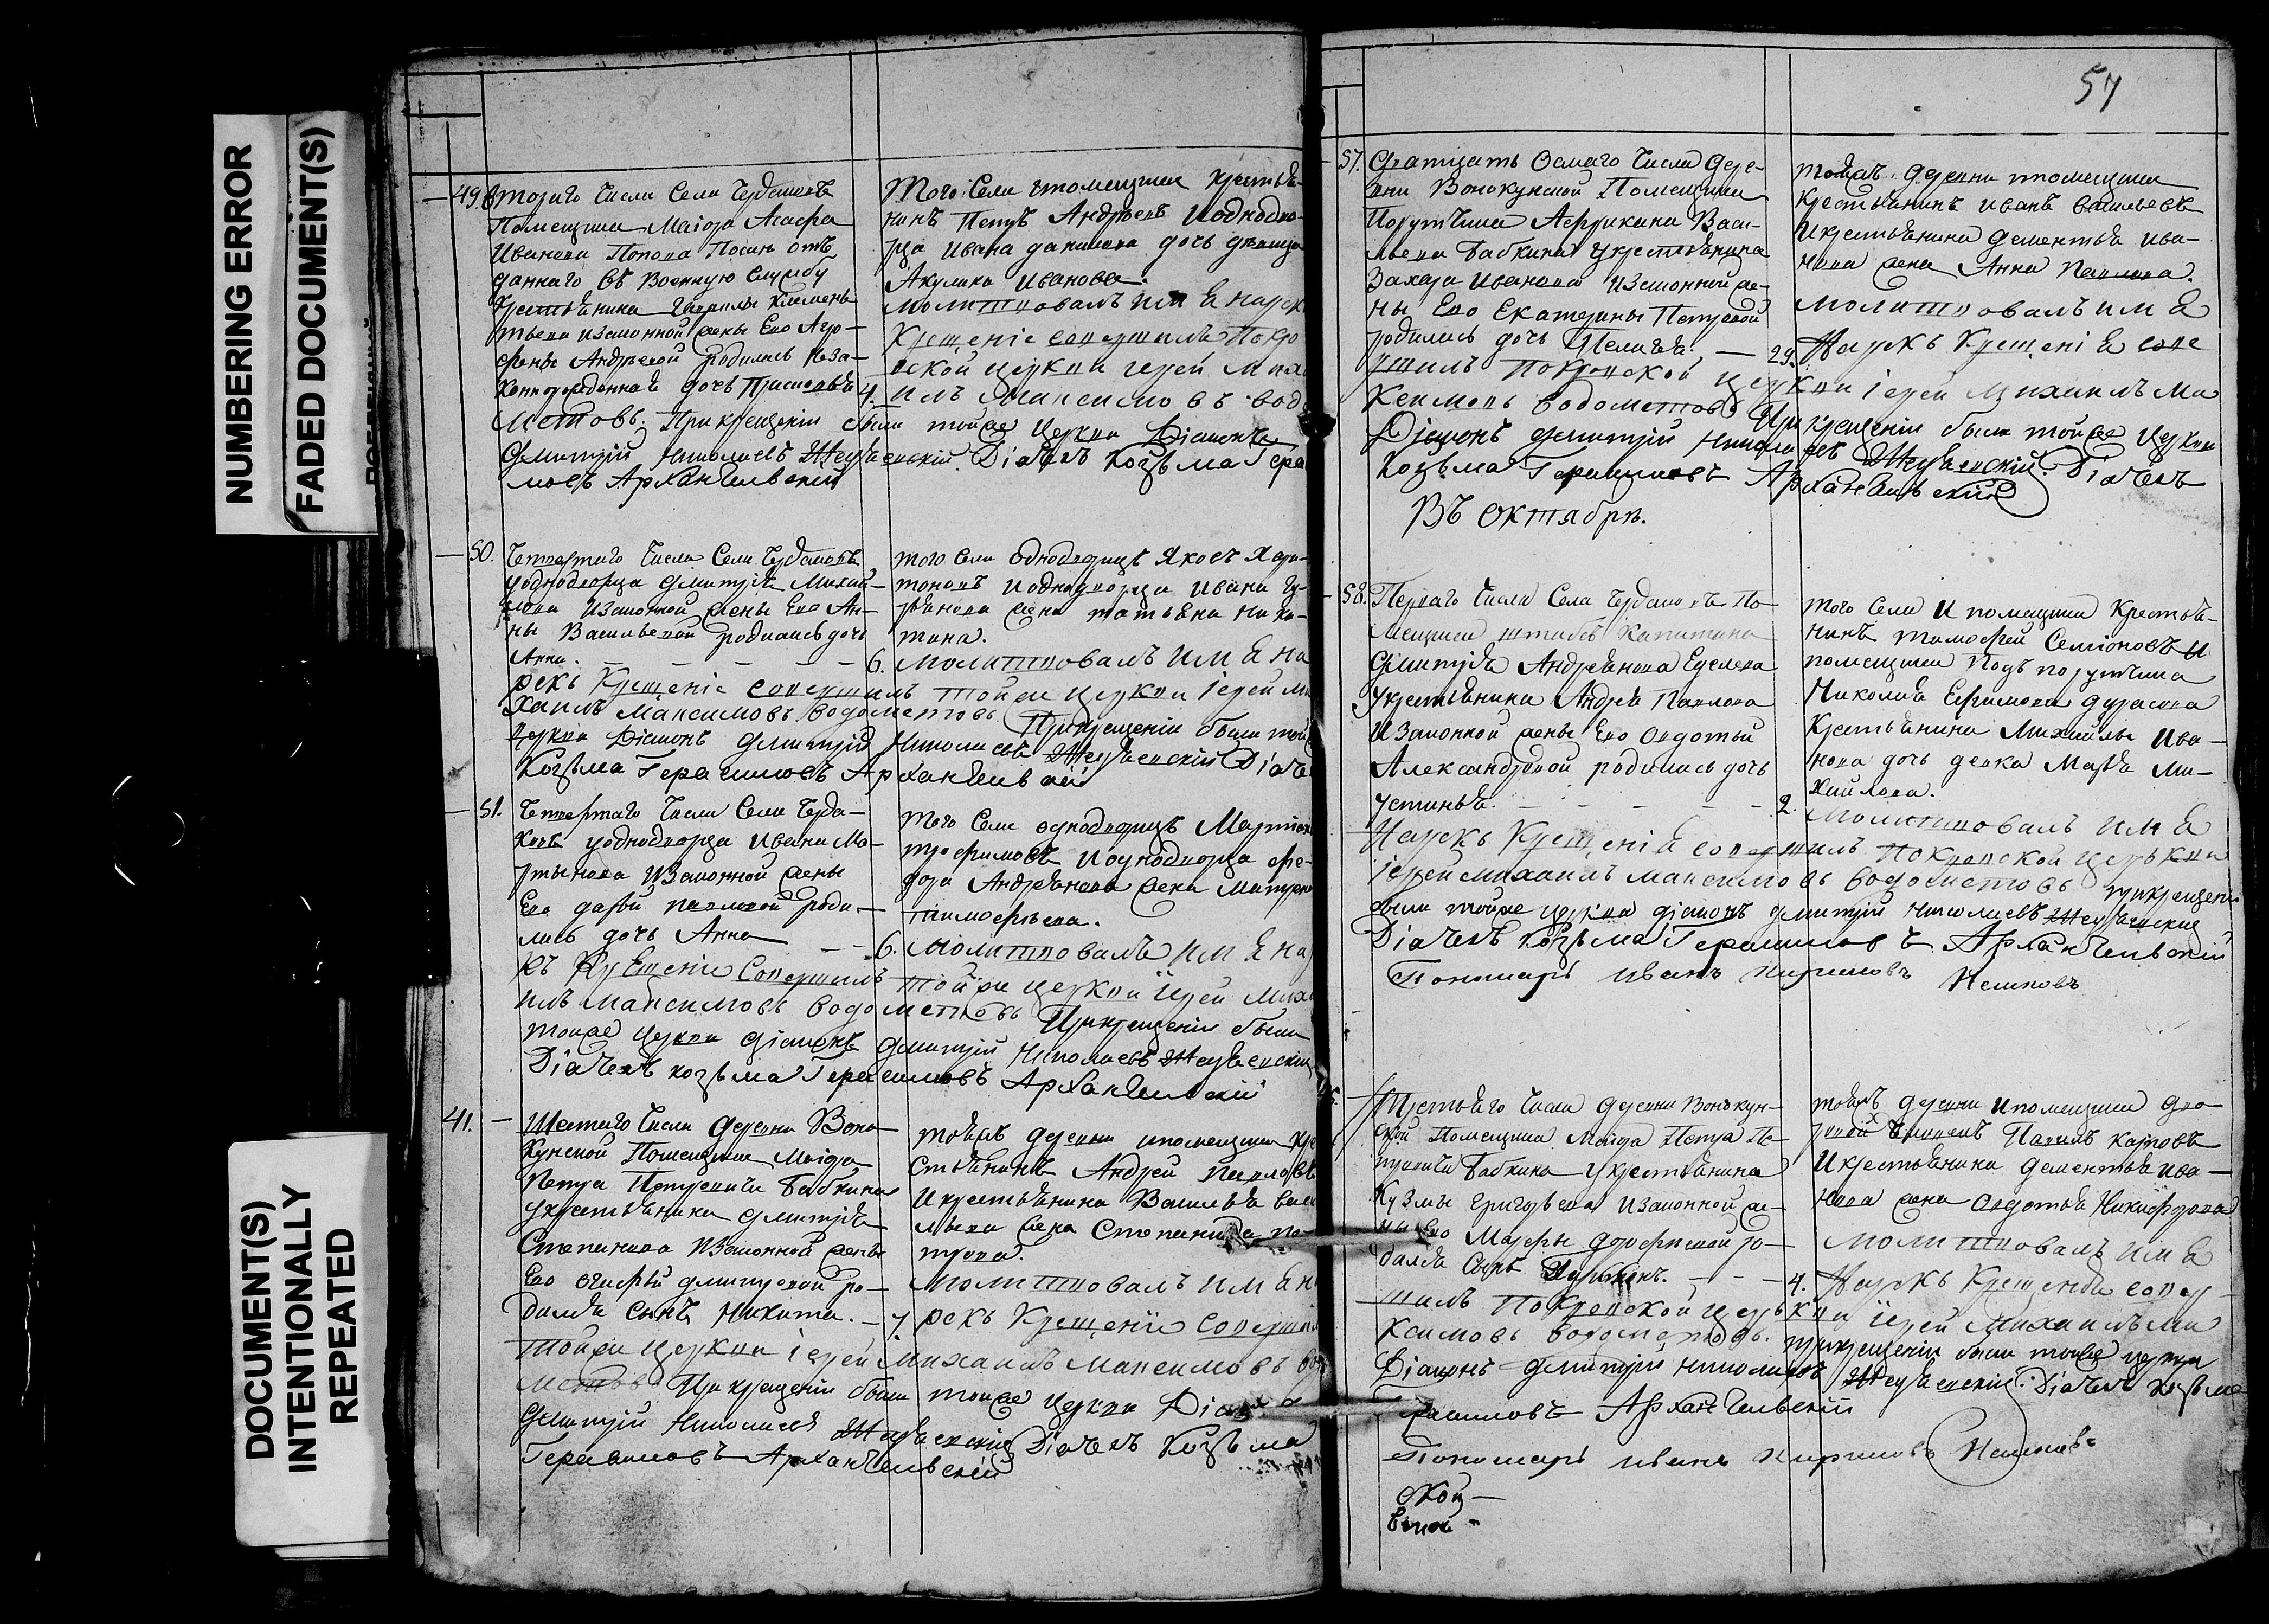 NUMBERING ERROR
FADED DOCUMENT(S)
DOCUMENT(S)
INTENTIONALLY
REPEATED
49. Второго числа села Чурдаковъ
Помещика Маiора
Иванова Попова Посли отъ
даннаго въ Военную службу
Крестьянина Гаврилы Клемень
тьева изаконной жены Ево Агро-
фены Андреевой родилась неза-
коннорожденная дочь
4.
Того села ипомещика крестья-
нинъ Петръ Андреевъ иоднодво-
рца Ивана Данилова дочь девица
Акулина Иванова.
Молитвовалъ имя нарек
Крещенiе совершилъ Покро
вской церкви iерей Миха
илъ Максимовъ водо
метовъ. При крещенiи были тойже церкви Дiаконъ
Дмитрiй Николаевъ Дiачекъ Козьма Гера
мовъ Архангельскiй
50. Четвертаго числа села
уоднодворца Дмитрiя Михай-
лова изаконной жены Ево Ан-
ны Васильевой родилась дочь
Анна. 6.
того села однодворецъ Яковъ Хари-
тоновъ иоднодворца Ивана
жена Татьяна Ники-
тина.
Молитвовалъ имя на
рекъ Крещенiе совершилъ тойже церкви iерей Ми
хаилъ Максимовъ водометовъ При крещенiи были той
церкви Дiаконъ Дмитрiй Николаевъ Дiаче
Козьма Герасимовъ Архангельскiй
51. Четвертаго числа села Чурда-
ковъ уоднодворца Ивана Ма-
ртынова изаконной жены
Ево Дарьи Павловой роди-
лась дочь Анна 6.
того села однодворецъ Мартин
Трофимовъ иоднодворца Фе-
дора Андреянова жена Матрена
Тимофеева.
Молитвовалъ имя на
къ Крещенiе Совершилъ тойже церкви iерей Миха
илъ Максимовъ водометовъ При крещенiи были
тойже церкви Дiаконъ Дмитрiй Николаевъ
Дiачекъ козьма Герасимовъ Архангельскiй
41. Шестаго числа деревни Воно-
кунской Помещика Маiора
Петра Петровича Бабкина
укрестьянина Дмитрiя
Степанова изаконной жены
Ево Дмитревой ро-
дился сынъ Никита. 7.
тойже деревни ипомещика кре
стьянинъ Андрей Павловъ
икрестьянина Василья Васи
льева жена Степанида Пе-
трова.
Молитвовалъ имя на
рекъ Крещенiе Совершилъ
тойже церкви iерей Михаилъ Максимовъ вод
метовъ При крещенiи были тойже церкви Дiаконъ
Дмитрiй Николаевъ Дiачекъ Козьма
Герасимовъ Архангельскiй
57
57. Дватцать Осмаго числа дере-
вни Вонокунской Помещика
Порутчика Африкана Васи-
льева Бабкина укрестьянина
Захара Иванова изаконной же-
ны Ево Екатерины Петровой
родилась дочь Пелагея. 29.
тойже деревни ипомещика
Крестьянинъ Иванъ Васильевъ
икрестьянина Дементья Ива-
нова жена Анна Павлова.
Молитвовалъ имя
Нарекъ Крещенiя сове
ршилъ Покровской церкви iерей Михаилъ Ма
ксимовъ водометовъ При крещенiи были тойже церкви
Дiаконъ Дмитрiй Николаевъ Дiачекъ
Козьма Герасимовъ Архангельскiй
Въ Октябре.
58. Перваго числа села Чурдаковъ По-
мещика штабсъ Капитана
Дмитрiя Андреянова
укрестьянина Андрея Павлова
изаконной жены Ево Овдотьи
Александровой родилась дочь
Устинья. 2.
того села ипомещика крестья-
нинъ Тимофей Семiоновъ и
помещика Подъпорутчика
Николая Ефимова Дурасова
Крестьянина Михайлы Ива-
нова дочь девка Марья Ми-
хайлова.
Молитвовалъ имя
Нарекъ Крещенiя совершилъ Покровской церькви
iерей михаилъ максимовъ водометовъ при крещенiи
были тойже церкви дiаконъ Дмитрiй Николаевъ
Дiачекъ Козьма Герасимовъ Архангельскiй
Пономарь иванъ кириловъ
Третьяго числа деревни Вонокун-
ской Помещика Маiора Петра Пе-
тровича Бабкина укрестьянина
Кузьмы Григорьева изаконной же-
ны Ево Марфы Дорофеевой ро-
дился сынъ 4.
тойже деревни ипомещика дво-
ровой человекъ Павелъ Карповъ
икрестьянина Дементья Ива-
нова жена Овдотья Никифорова
Молитвовалъ имя
Нарекъ Крещенiя совер
шилъ Покровской церькви iерей Михаилъ Ма
ксимовъ водометовъ. При крещенiи были тойже церкви
Дiаконъ Дмитрiй Николаевъ Дiачекъ Козьма
Герасимовъ Архангельскiй
Пономарь иванъ кириловъ